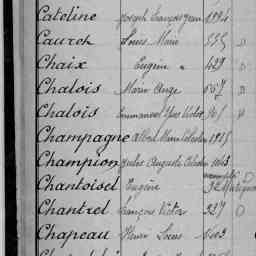 Cateline Joseph François Jean 1994
Cauret Louis Marie 555 D
Chaix Eugène " 429 D
Chalois Marie Ange 667 D
Chalois Emmanuel Yves Victor 765 D
Champagne Albert Marie Célestin 1915
Champion Jules Auguste 1043
Chantoisel Eugène
Chantrel François Victor 327 D
Chapeau Henri Louis